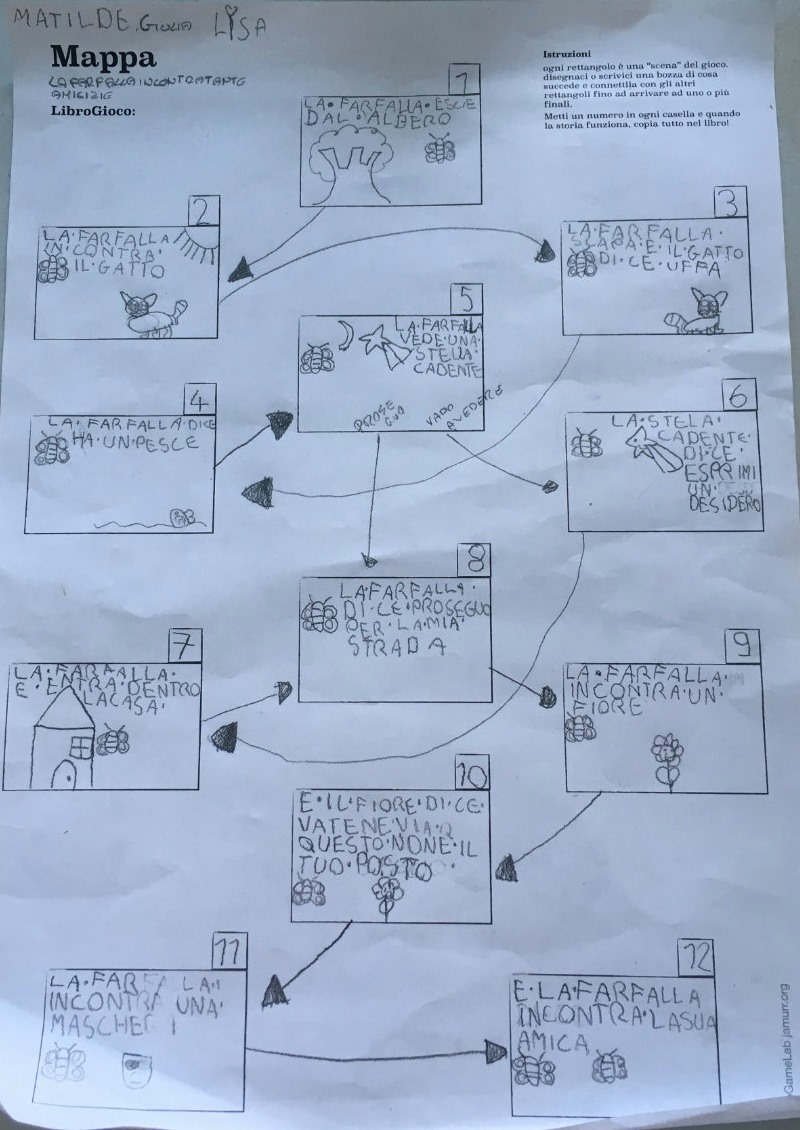 MATILDE, GIULIA LISA
Mappa
LA FARFALLA INCONTRA TANTE
AMICIZIE
LibroGioco:
Istruzioni
ogni rettangolo è una "scena" del gioco.
disegnaci o scrivici una bozza di cosa
succede e connettila con gli altri
rettangoli fino ad arrivare ad uno o più
finali.
Metti un numero in ogni casella e quando
la storia funziona, copia tutto nel libro!
1
LA·FARFALLA·ESCE
DAL·ALBERO
2
LA·FARFALLA
IN·CONTRA·
IL·GATTO
3
LA·FARFALLA·
SCAPA·E·IL·GATTO
DI·CE·UFFA
4
LA·FARFALLA·DICE
HA·UN·PESCE
5
LA·FARFALLA
VEDE·UNA·
STELLA·
CADENTE
PROSE
GUO
VADO
A VEDERE
6
LA·STELA·
CADENTE·
DI·CE·
ESPRIMI
UN·
DESIDERO
7
LA·FARFALLA·
E·ENTRA·DENTRO
LACASA·
8
LA·FARFALLA·
DI·CE·PROSEGUO
PER·LA·MIA·
STRADA
9
LA·FARFALLA·
INCONTRA·UN·
FIORE
10
E·IL·FIORE·DI·CE·
VATENE·VIA·
QUESTO·NONE·IL
TUO·POSTO·
11
LA·FARFALLA·
INCONTRA UNA·
12
E·LA·FARFALLA
INCONTRA·LASUA
AMICA
GameLab jamurr.org